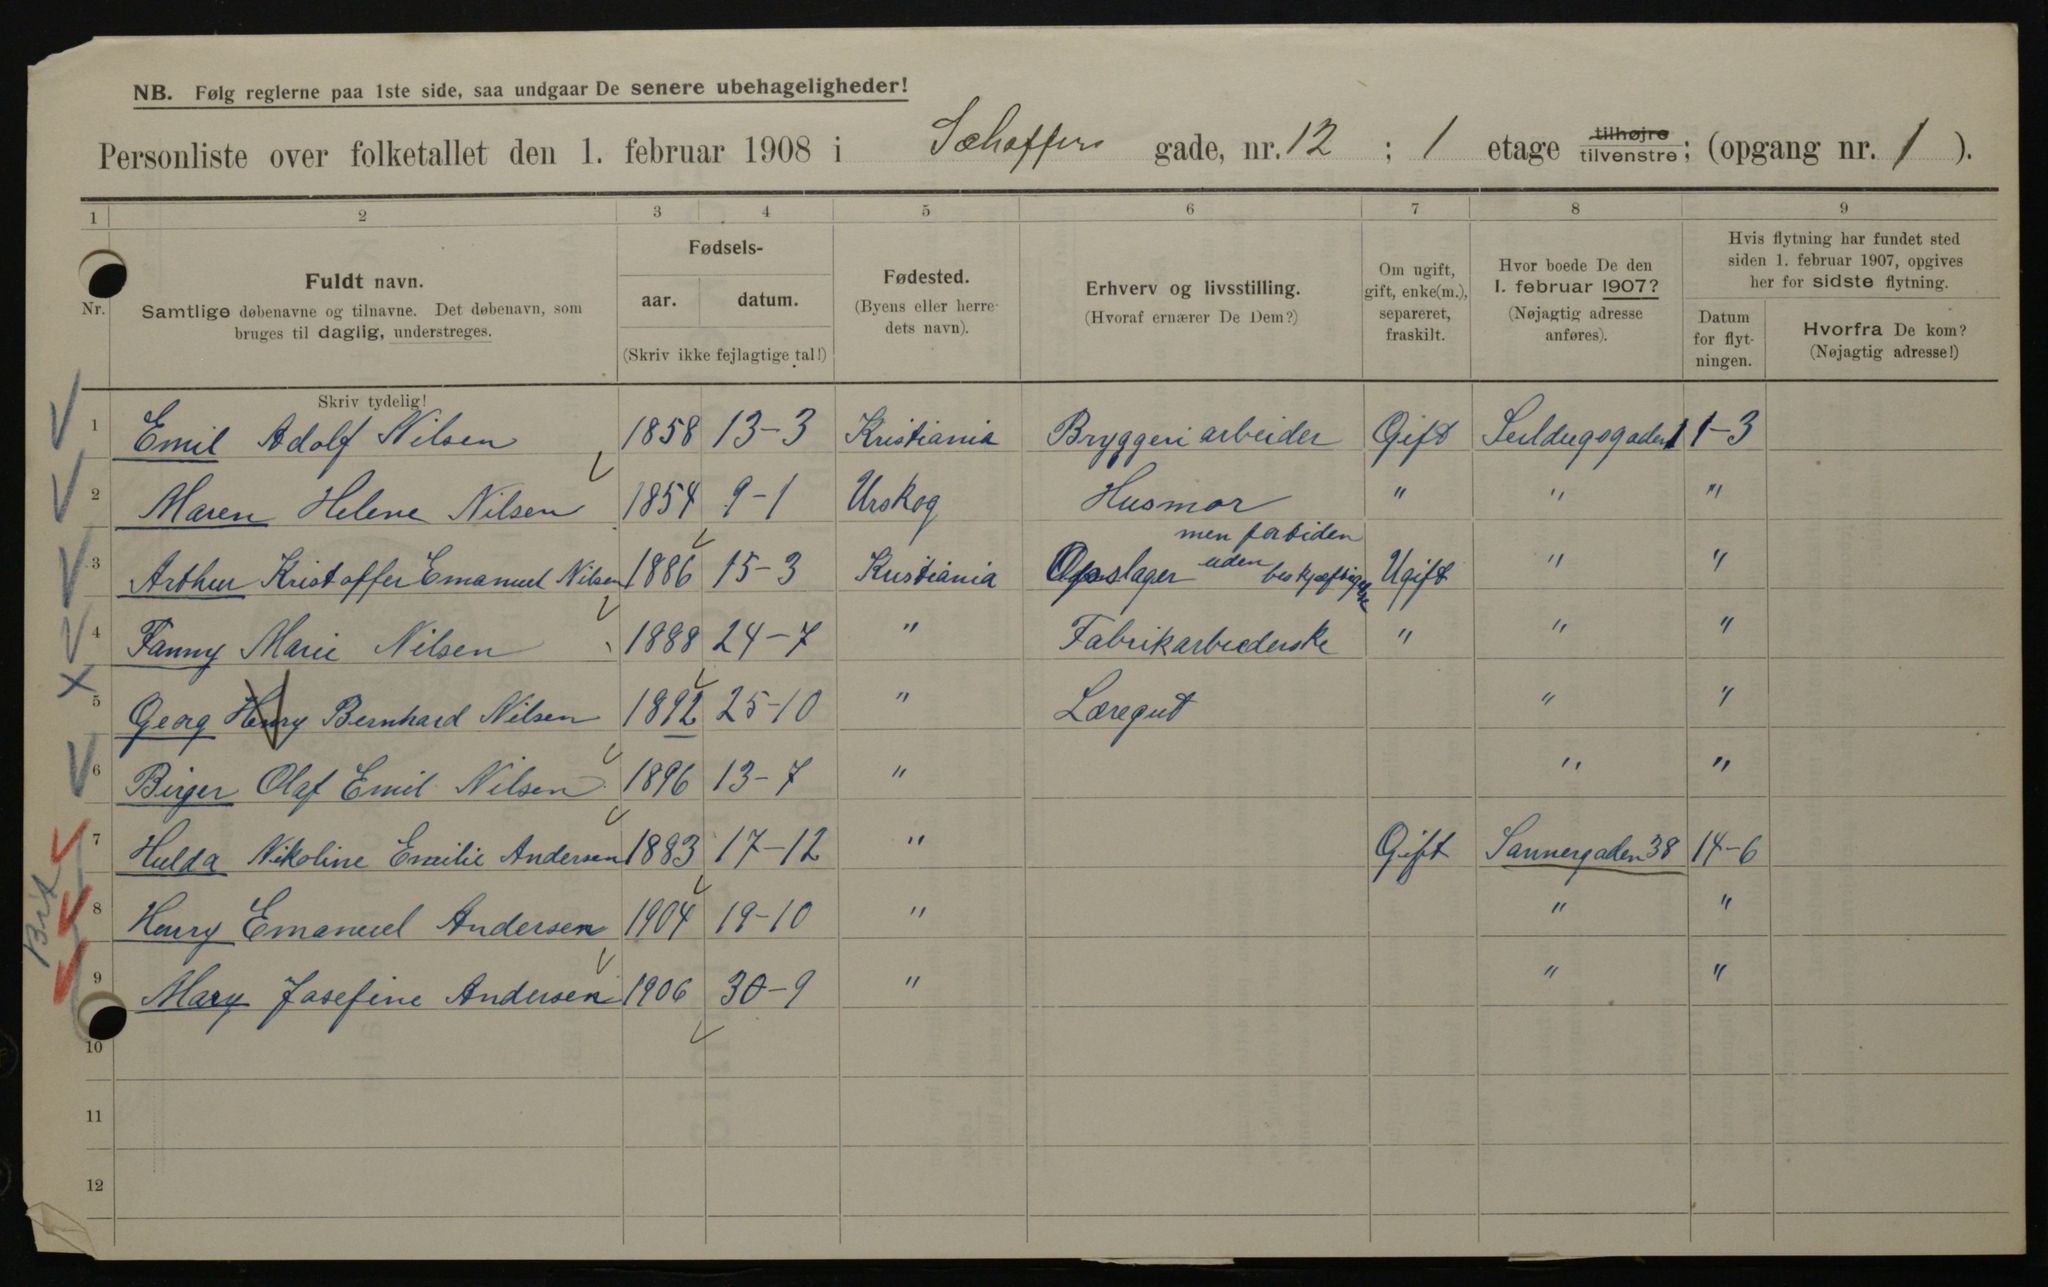 NB. Følg reglerne paa 1ste side, saa undgaar De senere ubehageligheder!
Personliste over folketallet den 1. februar 1908 i Schaffers gade, nr. 12 ; 1 etage tilhøjre tilvenstre; (opgang nr. 1 ).
1 2 3 4 5 6 7 8 9
Nr.
Fuldt navn.
Samtlige døbenavne og tilnavne. Det døbenavn, som
bruges til daglig, understreges.
Skriv tydelig!
Fødsels-
aar. datum.
(Skriv ikke fejlagtige tal!)
Fødested.
(Byens eller herre-
dets navn).
Erhverv og livsstilling.
(Hvoraf ernærer De Dem?)
Om ugift,
gift, enke(m.),
separeret,
fraskilt.
Hvor boede De den
1. februar 1907?
(Nøjagtig adresse
anføres).
Hvis flytning har fundet sted
siden 1. februar 1907, opgives
her for sidste flytning.
Datum
for flyt-
ningen.
Hvorfra De kom?
(Nøjagtig adresse!)
1 Emil Adolf Nilsen 1858 13-3 Kristiania Bryggeriarbeider Gift Seildugsgaden 1 1-3
2 Maren Helene Nilsen 1854 9-1 Urskog Husmor " " "
3 Arthur Kristoffer Emanuel Nilsen 1886 15-3 Kristiania Opslager men fortiden uden beskjæftigelse Ugift " "
4 Fanny Marie Nilsen 1888 24-7 " Fabrikarbeiderske " " "
5 Georg Henry Bernhard Nilsen 1892 25-10 " Læregut " "
6 Birger Olaf Emil Nilsen 1896 13-7 " " "
7 Hulda Nikoline Emilie Andersen 1883 17-12 " Gift Sannergaden 38 14-6
8 Henry Emanuel Andersen 1904 19-10 " " "
9 Mary Josefine Andersen 1906 30-9 " " "
10
11
12